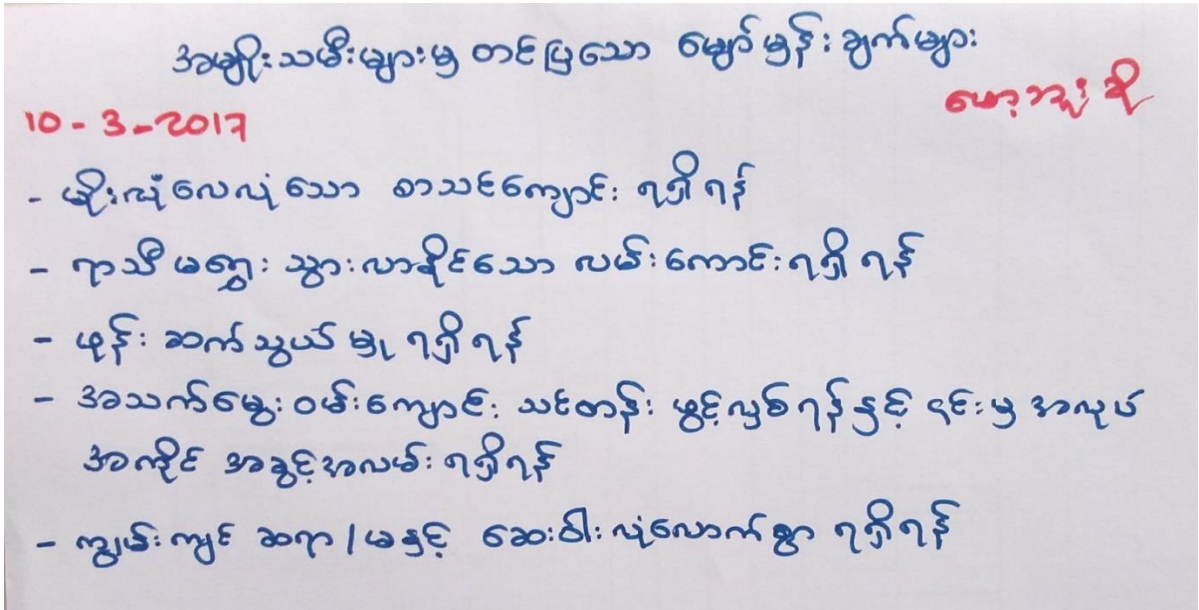 အမျိုးသမီးများမှ တင်ပြသော မျှော်မှန်းချက်များ
10-3-2017
- မိုးလုံလေလုံသော စာသင်ကျောင်း ရရှိရန်
- ရာသီမရွေး သွားလာနိုင်သော လမ်းကောင်းရရှိရန်
- ဖုန်းဆက်သွယ်မှု ရရှိရန်
- အသက်မွေးဝမ်းကျောင်း သင်တန်း ဖွင့်လှစ်ရန်နှင့် ၎င်းမှ အလုပ်
အကိုင် အခွင့်အလမ်းရရှိရန်
- ကျွမ်းကျင် ဆရာ/မနှင့် ဆေးဝါးလုံလောက်စွာ ရရှိရန်